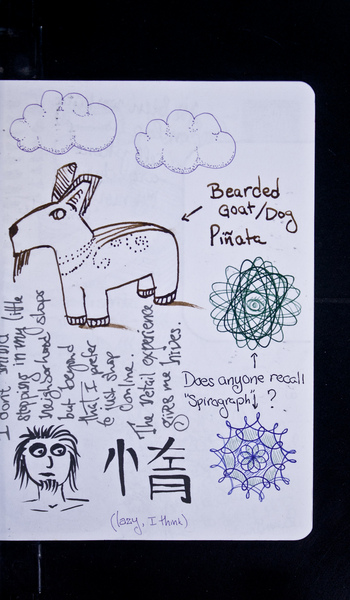 Bearded
Goat/Dog
Piñata
I don't mind
stopping in my little
neighborhood shops
but beyond
that I prefer
to just shop
online.
The retail experience
gives me hives.
Does anyone recall
"Spirograph"?
惰
(lazy, I think)